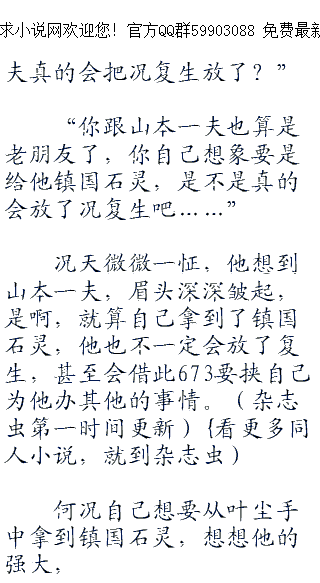 求小说网欢迎您! 官方QQ群59903088 免费最新
夫真的会把况复生放了？”
“你跟山本一夫也算是
老朋友了，你自己想象要是
给他镇国石灵，是不是真的
会放了况复生吧……”
况天微微一怔，他想到
山本一夫，眉头深深皱起，
是啊，就算自己拿到了镇国
石灵，他也不一定会放了复
生，甚至会借此673要挟自己
为他办其他的事情。（杂志
虫第一时间更新）{看更多同
人小说，就到杂志虫）
何况自己想要从叶尘手
中拿到镇国石灵，想想他的
强大，